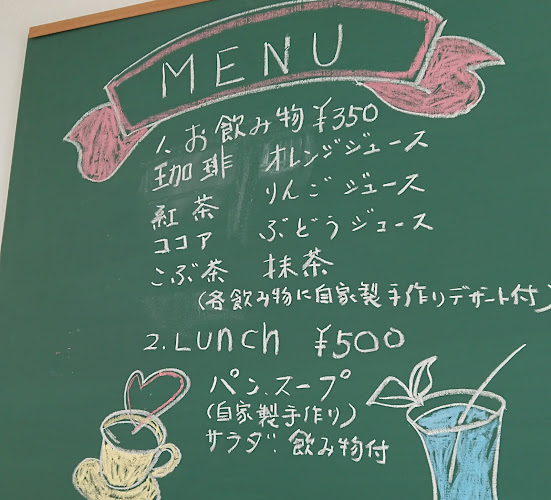 MENU
1. お飲み物 ¥350
珈琲 オレンジジュース
紅茶 りんごジュース
ココア ぶどうジュース
こぶ茶 抹茶
(各飲み物に自家製手作りデザート付)
2. Lunch ¥500
パン、スープ
(自家製手作り)
サラダ、飲み物付